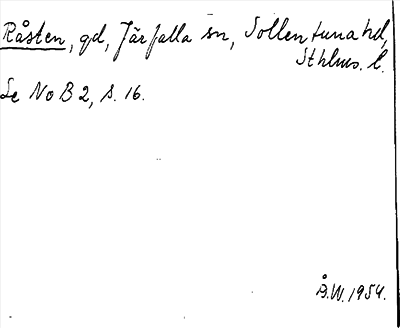 Råsten, gd, Järfalla sn, Sollentuna hd,
Sthlms. l.
Se NoB 2, s. 16.
B.W. 1954.